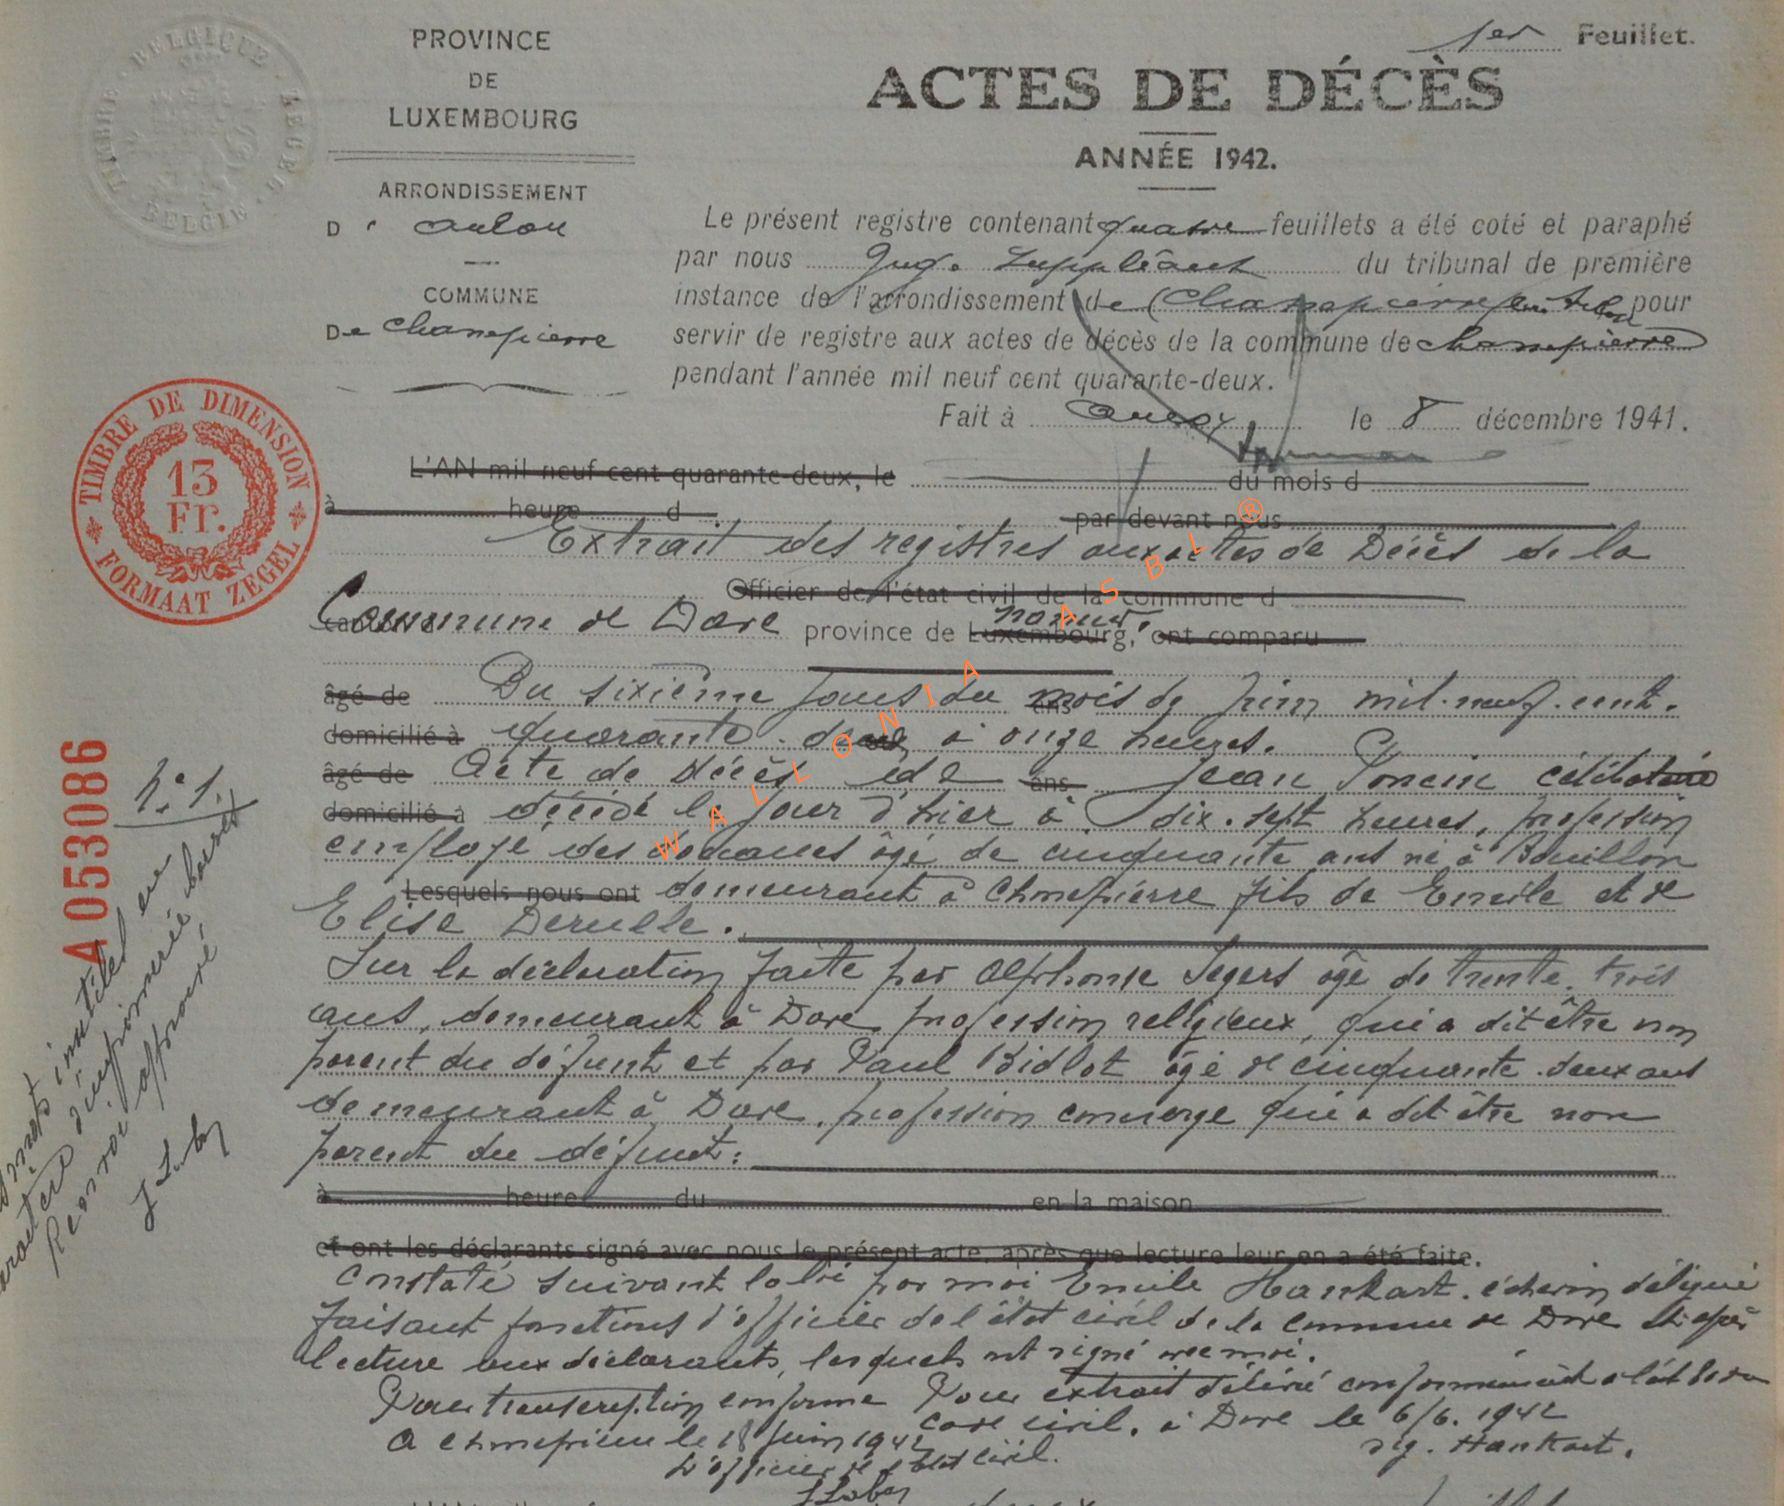 1er Feuillet.
PROVINCE
DE
LUXEMBOURG
ACTES DE DÉCÈS
ANNÉE 1942.
TIMBRE BELGIQUE ZEGEL BELGIE
ARRONDISSEMENT
D' Arlon
COMMUNE
De Chanepierre
Le présent registre contenant quatre feuillets a été coté et paraphé
par nous Juge Suppléant du tribunal de première
instance de l'arrondissement de (Chanepierre) Arlon pour
servir de registre aux actes de décès de la commune de Chanepierre
pendant l'année mil neuf cent quarante-deux.
Fait à le 8 décembre 1941.
TIMBRE DE DIMENSION
13
Fr.
FORMAAT ZEGEL
L'AN mil neuf cent quarante-deux, le du mois d
à heure d par devant nous
Extrait des registres aux actes de Décès de la
Officier de l'état civil de la commune d
Commune de Dave province de Luxembourg, Namur. ont comparu
âgé de Du sixième jour du mois de Juin mil-neuf-cent-
ans
domicilié à quarante-deux à onze heures.
âgé de Acte de décès de ans Jean Poncin célibataire
domicilié à décédé le jour d'hier à dix-sept heures, profession
employé des douanes âgé de cinquante ans né à Bouillon
Lesquels nous ont demeurant à Chnepierre fils de Emile et de
Elise Deruelle.
Sur la déclaration faite par Alphonse Segers âgé de trente-trois
ans, demeurant à Dave profession religieux, qui a dit être non
parent du défunt et par Paul Bidlot âgé de cinquante-deux ans
demeurant à Dave, profession concierge qui a dit être non
parent du défunt:
à heure du en la maison
et ont les déclarants signé avec nous le présent acte, après que lecture leur en a été faite.
Constaté suivant la loi par moi Emile Hankart, échevin délégué
faisant fonctions d'officier de l'état civil de la commune de Dave et après
lecture aux déclarants, lesquels ont signé avec moi.
Pour transcription conforme Pour extrait délivré conformément à l'art
code civil, à Dave le 6/6. 1942
A Chnepierre le 18 Juin 1942 sig. Hankart.
L'officier de l'état civil.
A 053086
No 1.
mots inutiles en
caractère d'imprimerie barrés
Renvoi approuvé
WALLONIA ASBL ®